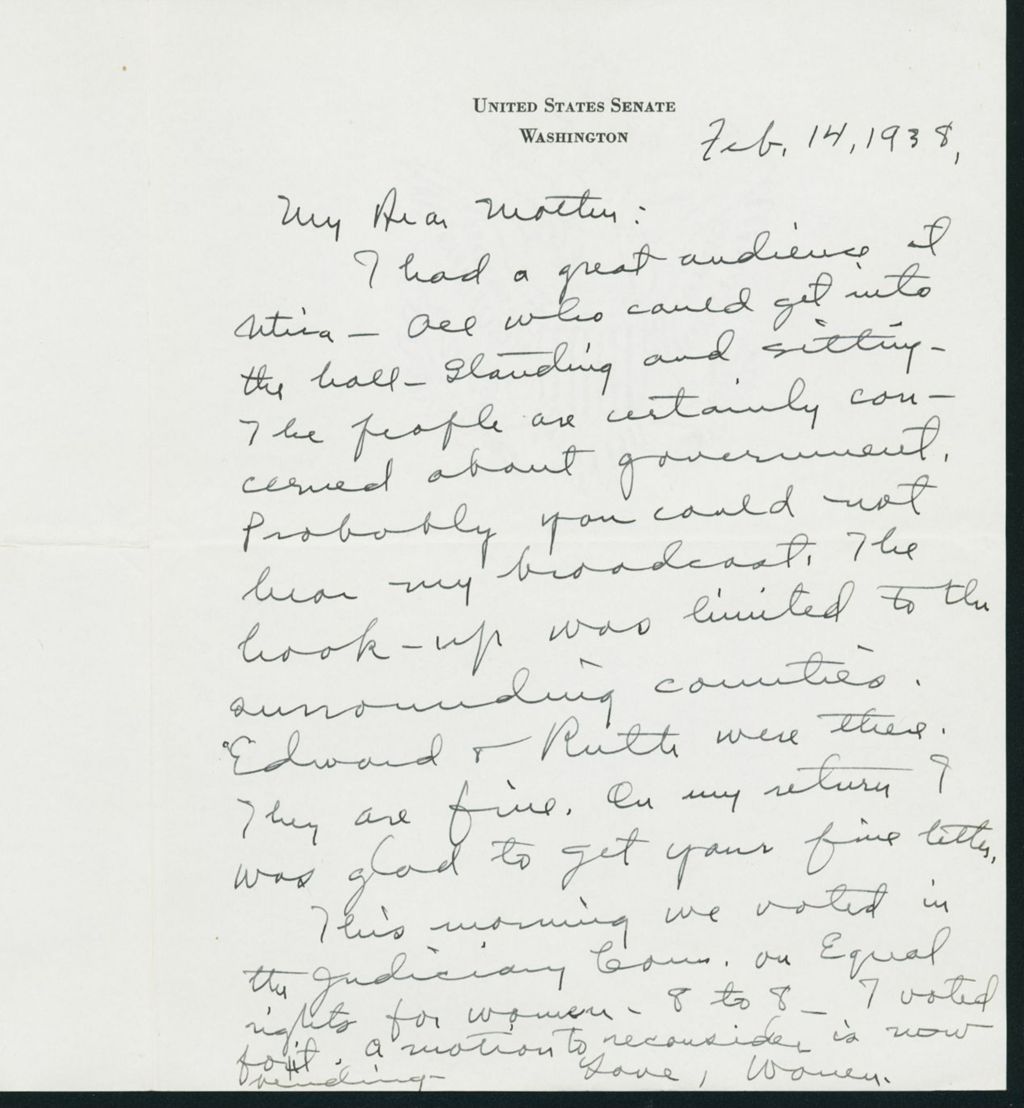 UNITED STATES SENATE
WASHINGTON
Feb. 14, 1938,
My Dear Mother:
I had a great audience at
Utica – All who could get into
the hall – Standing and sitting –
The people are certainly con-
cerned about government.
Probably you could not
hear my broadcast. The
hook-up was limited to the
surrounding counties.
Edward & Ruth were there.
They are fine. On my return I
was glad to get your fine letter.
This morning we voted in
the Judiciary Com. on Equal
rights for women – 8 to 8 – I voted
for it. A motion to reconsider is now
pending – Love, Warren.